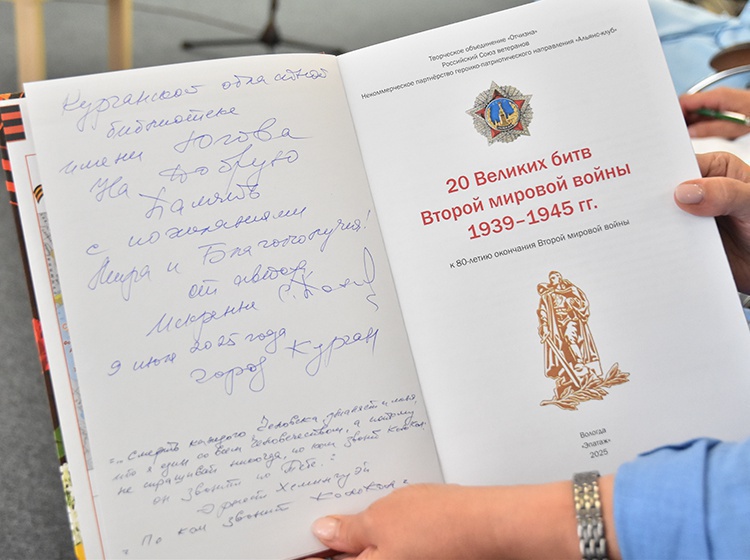 Курганской областной
библиотеке
имени Югова
На Добрую
Память
с пожеланиями
Мира и Благополучия!
от автора
Искренне
9 июля 2025 года
город Курган
"... Смерть каждого Человека, умаляет и меня,
ибо я един со всем Человечеством, а потому
не спрашивай никогда, по ком звонит Колокол
он звонит по Тебе."
Эрнест Хемингуэй
"По ком звонит Колокол"
Творческое объединение «Отчизна»
Российский Союз ветеранов
Некоммерческое партнёрство героико-патриотического направления «Альянс-клуб»
20 Великих битв
Второй мировой войны
1939–1945 гг.
к 80-летию окончания Второй мировой войны
Вологда
«Элатаж»
2025